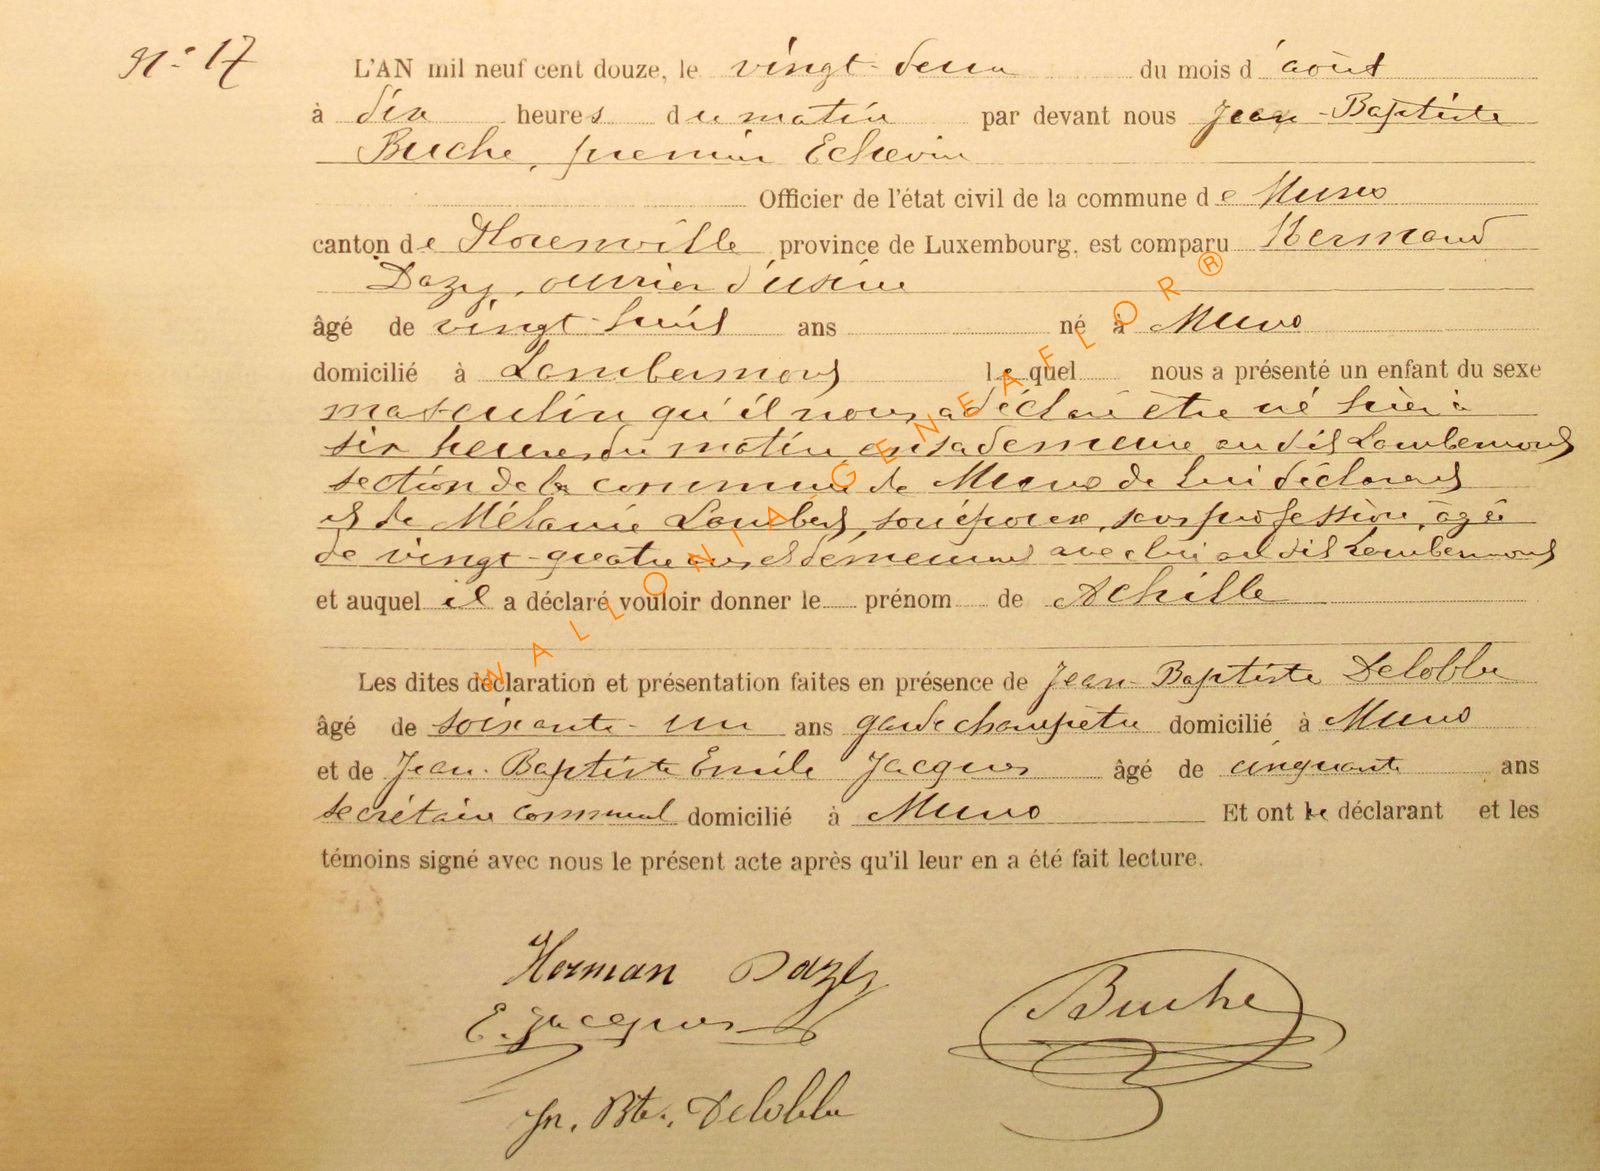 N° 17
L'AN mil neuf cent douze, le vingt-deux du mois d'août
à dix heures du matin par devant nous Jean-Baptiste
Buche, premier Echevin
Officier de l'état civil de la commune de Muno
canton de Florenville, province de Luxembourg, est comparu Hermand
Dazy, ouvrier d'usine
âgé de vingt-huit ans né à Muno
domicilié à Lambermont lequel nous a présenté un enfant du sexe
masculin qu'il nous a déclaré être né hier à
six heures du matin en sa demeure au dit Lambermont
section de la commune de Muno de lui déclarant
et de Mélanie Lambert, son épouse, sans profession, âgée
de vingt-quatre ans et demeurant avec lui au dit Lambermont
et auquel il a déclaré vouloir donner le prénom de Achille
Les dites déclaration et présentation faites en présence de Jean-Baptiste Deloblle
âgé de soixante-un ans garde champêtre domicilié à Muno
et de Jean-Baptiste Emile Jacques âgé de cinquante ans
secrétaire communal domicilié à Muno Et ont le déclarant et les
témoins signé avec nous le présent acte après qu'il leur en a été fait lecture.
Herman Dazy
E. Jacques
Buche
Jn. Bte. Deloblle
WALLONIA GENEAFLOR®